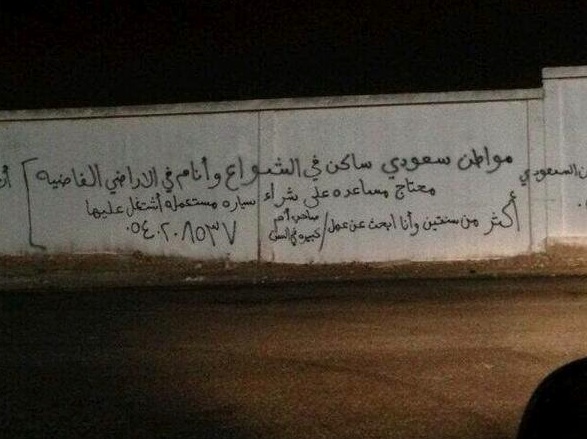 مواطن سعودي ساكن في الشوارع وأنام في الاراضي الفاضيه
محتاج مساعده على شراء سياره مستعمله أشتغل عليها
أكثر من سنتين وأنا ابحث عن عمل /
كبيره في السن
٠٥٤٠٢٠٨٥٣٧
السعودي